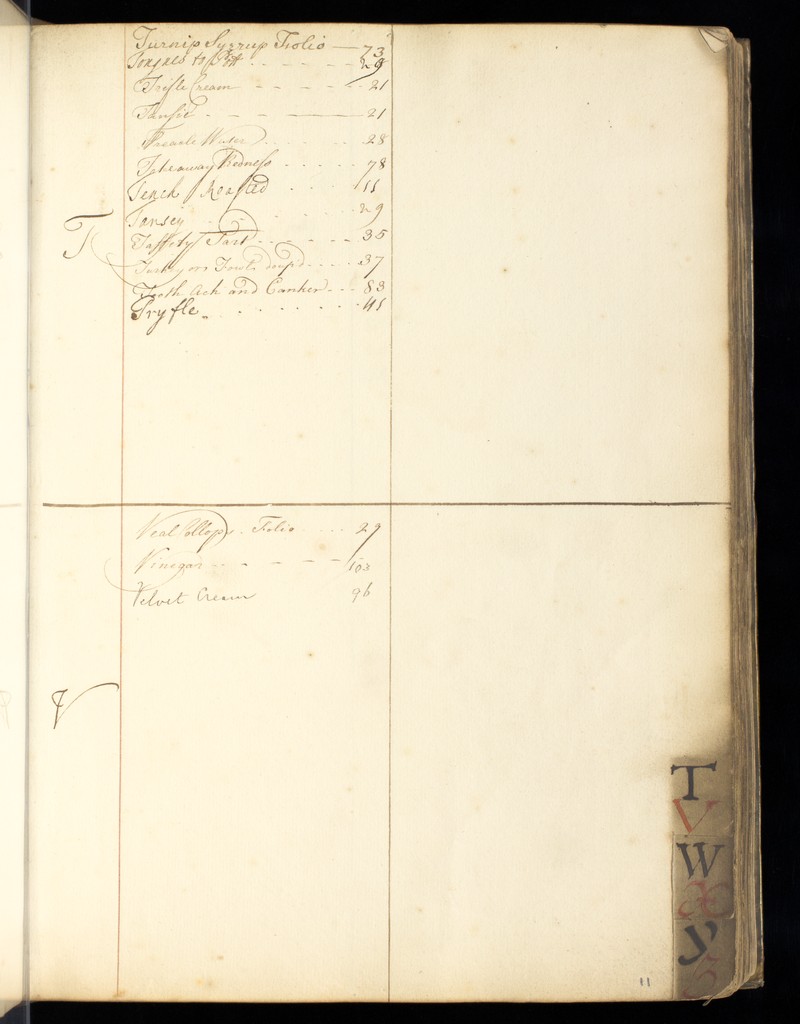 Turnip Syrrup Folio 73
Tongues to Pott 29
Trifle Cream 21
Tansie 21
Treacle Water 28
Take away Redness 78
Tench Roasted 11
Tansey 29
T
Taffety Tart 35
Turkey or Fowls 37
Tooth Ach and Canker 83
Tryfle 41
Veal Collops Folio 29
Vinegar 103
Velvet Cream 96
V
T
V
W
Y
11